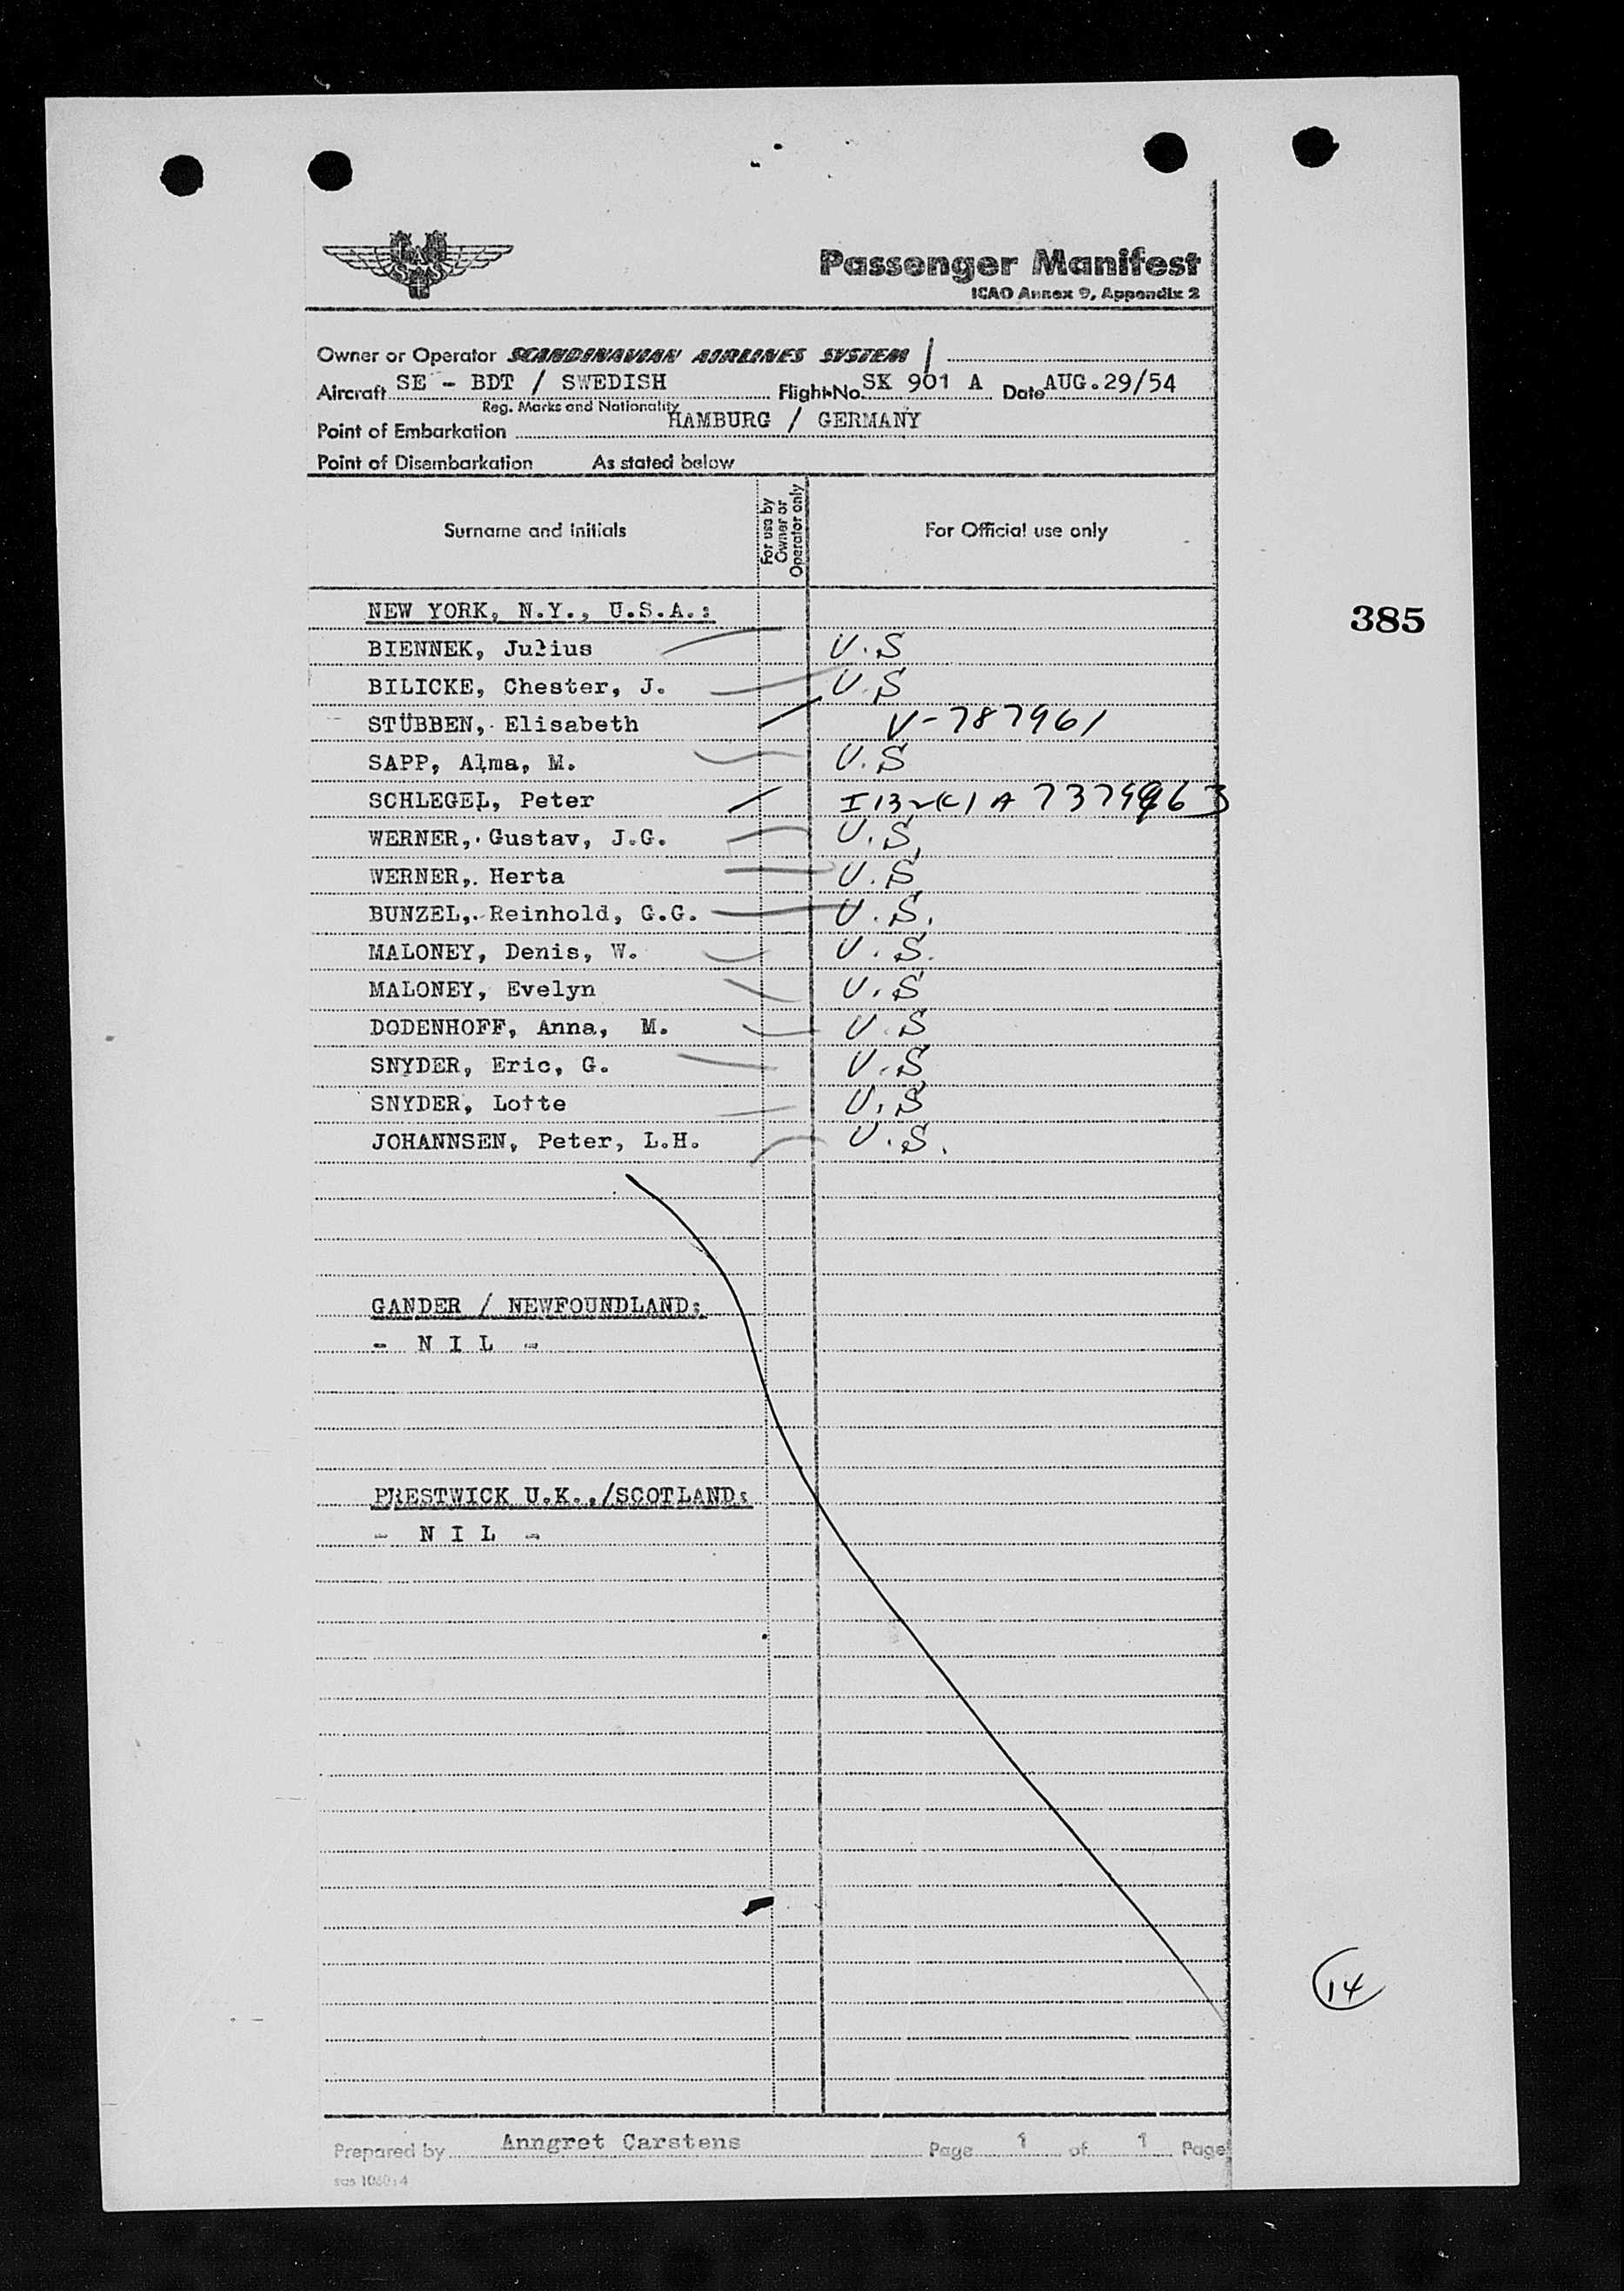 SAS
Passenger Manifest
ICAO Annex 9, Appendix 2
Owner or Operator SCANDINAVIAN AIRLINES SYSTEM
Aircraft SE - BDT / SWEDISH Flight No. SK 901 A Date AUG.29/54
Reg. Marks and Nationality
Point of Embarkation HAMBURG / GERMANY
Point of Disembarkation As stated below
Surname and Initials For use by Owner or Operator only For Official use only
NEW YORK, N.Y., U.S.A.:
385
BIENNEK, Julius U.S
BILICKE, Chester, J. U.S
STÜBBEN, Elisabeth V-787961
SAPP, Alma, M. U.S
SCHLEGEL, Peter
WERNER, Gustav, J.G. U.S.
WERNER, Herta U.S
BUNZEL, Reinhold, G.G. U.S.
MALONEY, Denis, W. U.S.
MALONEY, Evelyn U.S
DODENHOFF, Anna, M. U.S
SNYDER, Eric, G. U.S
SNYDER, Lotte U.S
JOHANNSEN, Peter, L.H. U.S.
GANDER / NEWFOUNDLAND:
- N I L -
PRESTWICK U.K.,/SCOTLAND:
- N I L -
14
Prepared by Anngret Carstens Page 1 of 1 Page